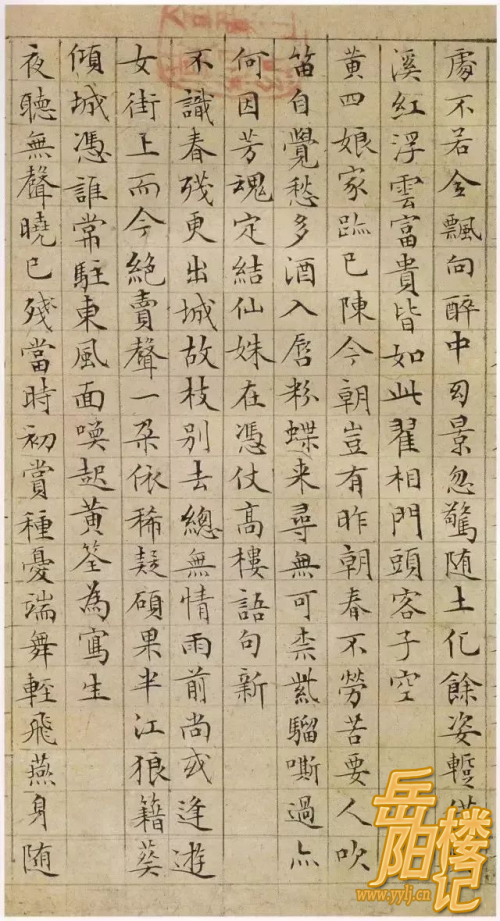 處不若令飄向酔中景忽驚随土化餘姿蹔
溪紅浮雲富貴皆如此翟相門頭客子空
黄四娘家跡已陳今朝豈有昨朝春不勞苦要人吹
笛自覺愁多酒入唇粉蝶来尋無可柰紫騮嘶過亦
何因芳魂定結仙姝在憑仗高樓語句新
不識春殘更出城故枝别去總無情雨前尚或逢遊
女街上而今絶賣聲一朶依稀疑碩果半江狼籍葬
傾城憑誰常駐東風面喚起黄筌為寫生
夜聽無聲曉已殘當時初賞種憂端舞輕飛燕身随
岳阳楼记
www.yylj.cn